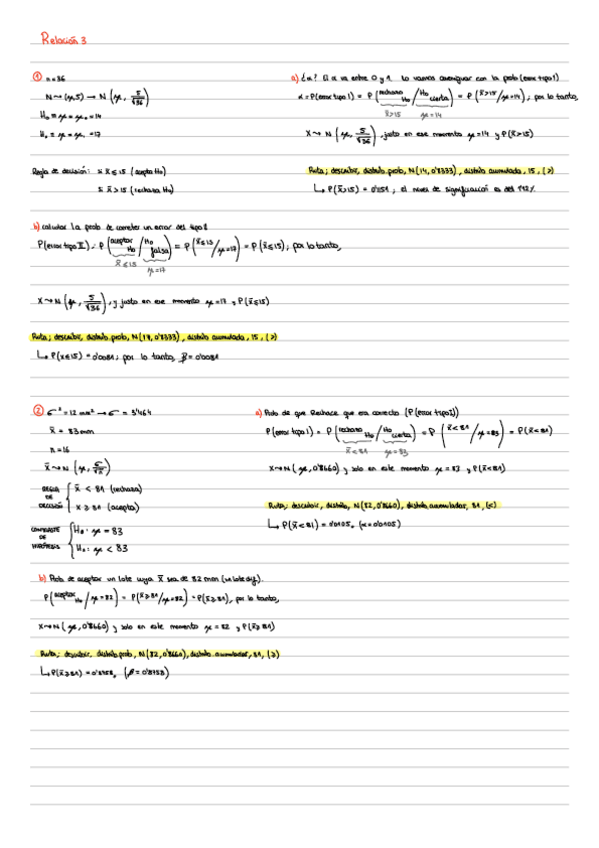 Relación 3
① n = 36
N ~ (μ, 5) → N (μ, 5/√36)
H₀ ≡ μ = μ₀ = 14
H₁ ≡ μ = μ₁ = 17
Regla de decisión: si x̄ ≤ 15 (acepta H₀)
si x̄ > 15 (rechaza H₀)
a) ¿α? El α va entre 0 y 1. Lo vamos averiguar con la prob (error tipo I)
α = P(error tipo I) = P (rechazar H₀ / H₀ cierta) = P (x̄ > 15 / μ = 14); por lo tanto,
x̄ > 15 μ = 14
X ~ N (μ, 5/√36), justo en ese momento μ = 14 y P(x̄ > 15)
Ruta; describir, distrib prob, N(14, 0'8333), distrib acumulada, 15, (>)
↳ P(x̄ > 15) = ; el nivel de significación es del
b) calcular la prob de cometer un error del tipo II
P(error tipo II) = P (aceptar H₀ / H₀ falsa) = P (x̄ ≤ 15 / μ = 17) = P(x̄ ≤ 15); por lo tanto,
x̄ ≤ 15 μ = 17
X ~ N (μ, 5/√36), y justo en ese momento μ = 17 y P(x̄ ≤ 15)
Ruta; describir, distrib prob, N(17, 0'8333), distrib acumulada, 15,
↳ P(x ≤ 15) = 0'0081; por lo tanto, β = 0'0081
② σ² = 12 mm² → σ = 3'464
x̄ = 83 mm
n = 16
x̄ ~ N (μ, σ/√n)
REGLA DE DECISIÓN { x̄ < 81 (rechaza)
x ≥ 81 (acepta)
CONTRASTE DE HIPÓTESIS { H₀: μ = 83
H₁: μ < 83
a) Prob de que Rechace que era correcto (P(error tipo I))
P(error tipo I) = P (rechazar H₀ / H₀ cierta) = P (x̄ < 81 / μ = 83) = P(x̄ < 81)
x̄ < 81 μ = 83
X ~ N (μ, 0'8660) y solo en este momento μ = 83 y P(x̄ < 81)
Ruta; describir, distrib, N(82, 0'8660), distrib acumuladas, 81, (<)
↳ P(x̄ < 81) = 0'0105. (α = 0'0105)
b) Prob de aceptar un lote cuya x̄ sea de 82 mm
P (aceptar H₀ / μ = 82) = P(x̄ ≥ 81 / μ = 82) = P(x̄ ≥ 81), por lo tanto,
X ~ N (μ, 0'8660) y solo en este momento μ = 82 y P(x̄ ≥ 81)
Ruta; describir, distrib prob, N(82, 0'8660), distrib acumulada, 81, (≥)
↳ P(x̄ ≥ 81) = 0'8758. (β = 0'8758)